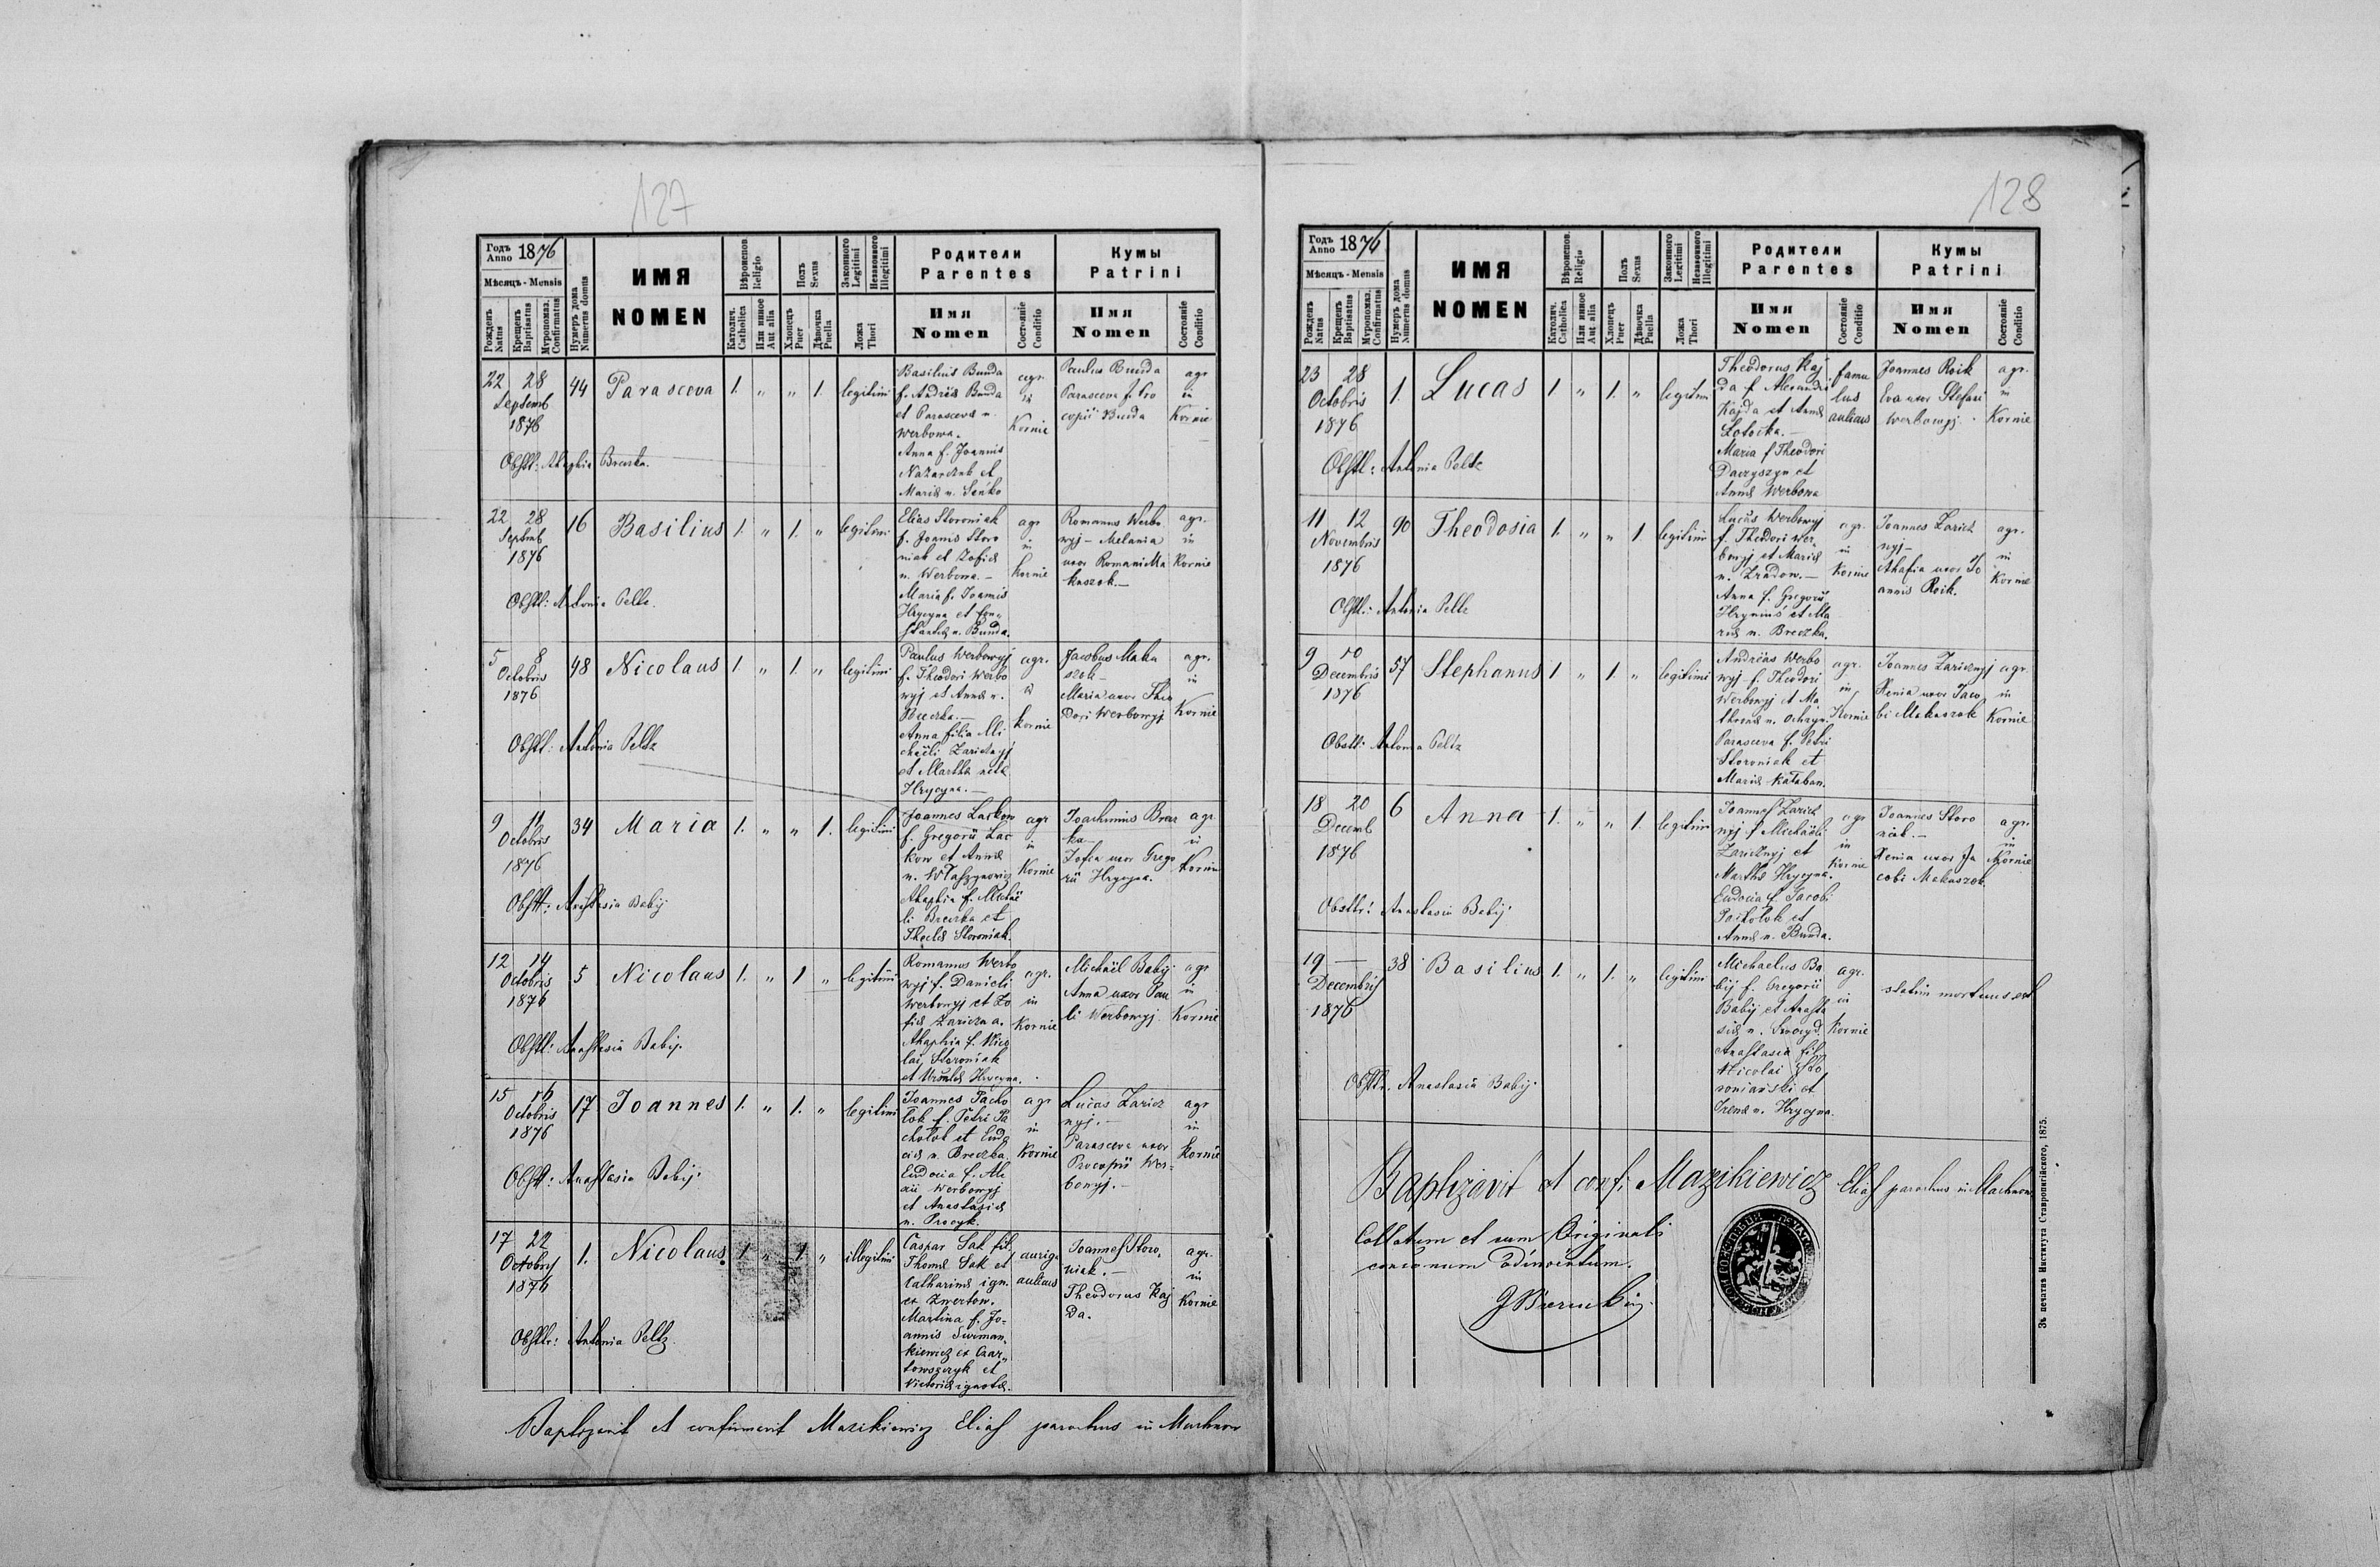 127
Годъ Anno 1876
Мѣсяцъ - Mensis
Рожденъ Natus
Крещенъ Baptisatus
Мѵропомаз. Confirmatus
Нумеръ дома Numerus domus
ИМЯ
NOMEN
Вѣроиспов. Religio
Католич. Catholica
Или иное Aut alia
Полъ Sexus
Хлопецъ Puer
Дѣвочка Puella
Законного Legitimi
Незаконного Illegitimi
Ложа Thori
Родители
Parentes
Имя
Nomen
Состояніе Conditio
Кумы
Patrini
Имя
Nomen
Состояніе Conditio
22 28 44 Parasceva 1. " " 1. legitimi
Septemb
1876
Basilius Bunda
f. Andreä Bunda
et Parascevä n.
Werbowa.
Anna f. Joannis
Nazarczuk et
Mariä n. Seńko
agr.
in
Kornie
Paulus Bunda
Parasceva f. Pro
copii Bunda
agr
in
Kornie
Obstt: Ahaphia Breczka.
22 28 16 Basilius 1. " 1. " legitimi
Septemb
1876
Elias Storoniak
f. Joannis Storo
niak et Zofiä
n. Werbowa. –
Maria f. Joannis
Hrycyna et Con=
stantiä n. Bunda.
agr
in
Kornie
Romanus Werbo
wyj – Melania
uxor Romani Ma
kuszok. –
agr.
in
Kornie
Obstt: Antonia Peltz.
5 8 48 Nicolaus 1. " 1. " legitimi
Octobris
1876
Paulus Werbowyj
f. Theodori Werbo
wyj et Annä n.
Breczka. –
Anna filia Mi
chaëli Zaricznyj
et Martha natä
Hrycyna. –
agr.
in
Kornie
Jacobus Maku
szok –
Maria uxor Theo
dori Werbowyj
agr.
in
Kornie
Obstt: Antonia Peltz
9 11 34 Maria 1. " " 1. legitimi
Octobris
1876
Joannes Laskow
f. Gregorii Las
kow et Annä
n. Wlaszynowicz
Ahaphia f. Michaë
li Breczka et
Theclä Storoniak.
agr
in
Kornie
Joachimus Brecz
ka –
Zofia uxor Grego
rii Hrycyna.
agr.
in
Kornie
Obstt: Anastasia Babij
12 14 5 Nicolaus 1. " 1 " legitimi
Octobris
1876
Romanus Werbo
wyj f. Danieli
Werbowyj et Zo
fiä Zariczna.
Ahaphia f. Nico
lai Storoniak
et Hrycyna.
agr.
in
Kornie
Michaël Babij
Anna uxor Pau
li Werbowyj
agr
in
Kornie
Obstt: Anastasia Babij.
15 16 17 Joannes 1. " 1. " legitimi
Octobris
1876
Joannes Pacho
lok f. Petri Pa
cholok et Eudo
ciä n. Breczka.
Eudocia f. Ale
xii Werbowyj
et Anastasiä
n. Procyk.
agr
in
Kornie
Lucas Zaricz
nyj. –
Parasceva uxor
Procopii Wer=
bowyj. –
agr
in
Kornie
Obstt: Anastasia Babij.
17 22 1. Nicolaus. 1. " 1. " illegitimi
Octobris
1876
Caspar Sak fil.
Thomä Sak et
Catharinä ign.
ex Zwertow.
Martina f. Jo=
annis Surman=
kiewicz ex Czar=
towszczyk et
Victoriä ignotä.
auriga
aulicus
Joannes Storo=
niak. –
Theodorus Kaj
da.
agr.
in
Kornie
Obstt: Antonia Peltz.
Baptizavit et confirmavit Mazikiewicz Elias parochus in Machnow
128
Годъ Anno 1876
Мѣсяцъ - Mensis
Рожденъ Natus
Крещенъ Baptisatus
Мѵропомаз. Confirmatus
Нумеръ дома Numerus domus
ИМЯ
NOMEN
Вѣроиспов. Religio
Католич. Catholica
Или иное Aut alia
Полъ Sexus
Хлопецъ Puer
Дѣвочка Puella
Законного Legitimi
Незаконного Illegitimi
Ложа Thori
Родители
Parentes
Имя
Nomen
Состояніе Conditio
Кумы
Patrini
Имя
Nomen
Состояніе Conditio
23 28 1. Lucas 1. " 1. " legitimi
Octobris
1876
Theodorus Kaj
da f. Alexandri
Kajda et Annä
Zolocka. –
Maria f Theodori
Daczyszyn et
Annä Werbowa
famu
lus
aulicus
Joannes Roik
Eva uxor Stefani
Werbowyj.
agr.
in
Kornie
Obstt: Antonia Peltz
11 12 90 Theodosia 1. " " 1 legitimi
Novembris
1876
Lucas Werbowyj
f. Theodori Wer=
bowyj et Mariä
n. Zradow. –
Anna f. Gregorii
Hryniuś et Ma
riä n. Breczka.
agr.
in
Kornie
Joannes Zaricz
nyj –
Ahafia uxor Jo
annis Roik.
agr.
in
Kornie
Obstt.: Antonia Peltz
9 10 57 Stephanus 1 " 1. " legitimi
Decembris
1876
Andreas Werbo
wyj f. Theodori
Werbowyj et Ma
thronä n. Ochryn.
Parasceva f. Petri
Storoniak et
Mariä Kataban.
agr.
in
Kornie
Joannes Zaricznyj
Xenia uxor Jaco
bi Makuszok
agr.
in
Kornie
Obstt: Antonia Peltz
18 20 6 Anna 1. " " 1. legitimi
Decemb
1876
Joannes Zaricz
nyj f Michaëli
Zaricznyj et
Marthä Hrycyna.
Eudocia f. Jacobi
Pacholok et
Annä n. Bunda.
agr
in
Kornie
Joannes Storo
niak. –
Xenia uxor Ja
cobi Makuszok.
agr.
in
Kornie
Obsttr: Anastasia Babij.
19 — 38 Basilius 1. " 1. " legitimi
Decembris
1876
Michaelus Ba
bij f. Gregorii
Babij et Anasta
siä n.
Anastasia fil.
Nicolai Sto
roniański et
Irenä n. Hrycyna.
agr.
in
Kornie
statim mortuus est
Obsttr. Anastasia Babij.
Baptizavit et conf: Mazikiewicz Elias parochus in Machnow
Collatum et cum Originali
concinnum adinventum.
Зъ печатнѣ Института Ставропигійского, 1875.